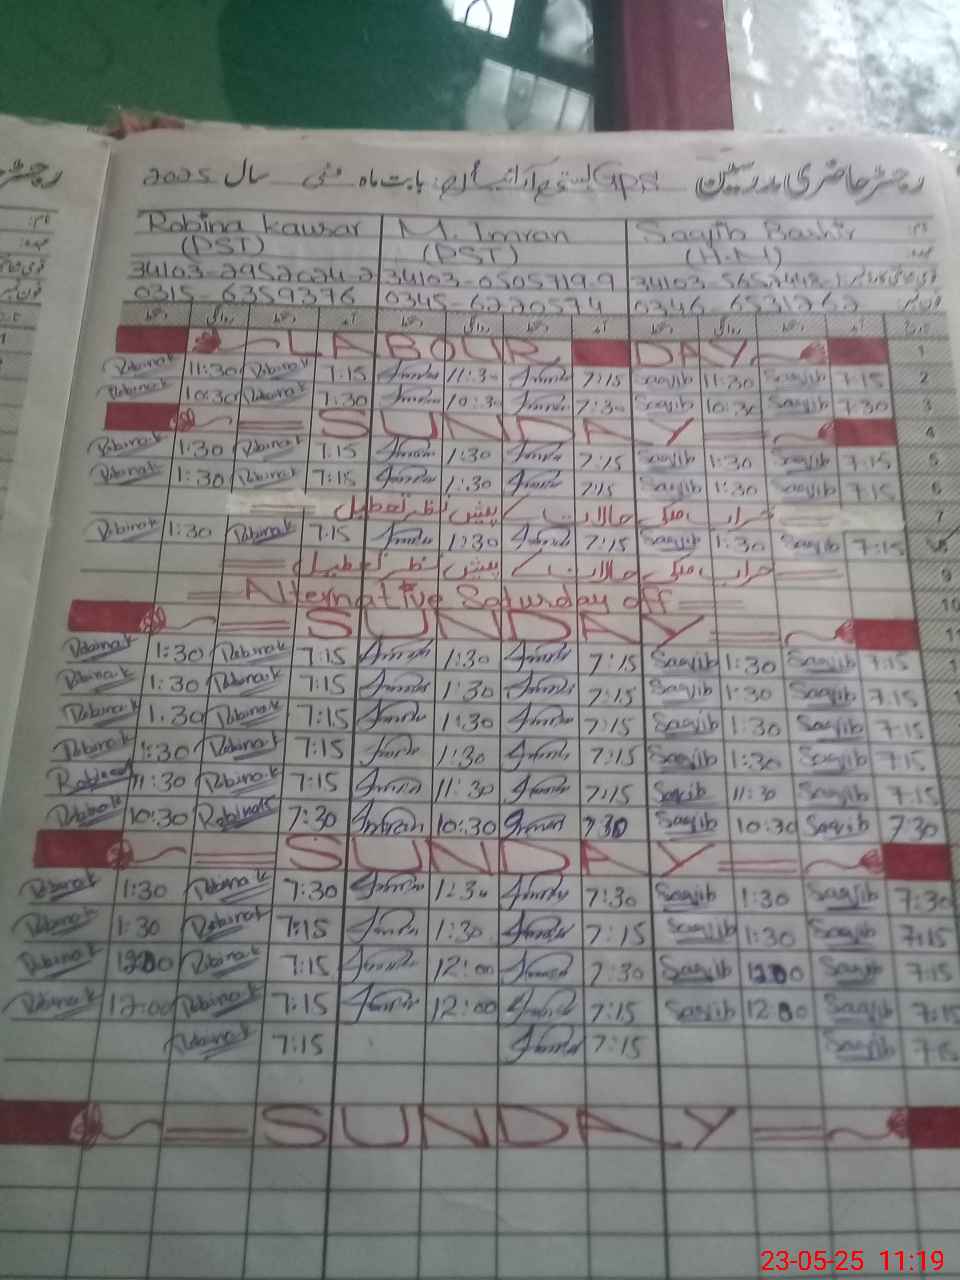 رجسٹر حاضری مدرسین GPS بابت ماہ مئی سال 2025
Robina Kausar M. Imran Saqib Bashir
(PST) (PST) (H.M)
34103-0505719-9
0315-6359376 0345-6220574 0346-6531262
LABOUR DAY 1
Robina.k 11:30 Robina.k 7:15 Imran 11:30 Imran 7:15 Saqib 11:30 Saqib 7:15 2
Robina.k 10:30 Robina.k 7:30 Imran 10:30 Imran 7:30 Saqib 10:30 Saqib 7:30 3
SUNDAY 4
Robina.k 1:30 Robina.k 7:15 Imran 1:30 Imran 7:15 Saqib 1:30 Saqib 7:15 5
Robina.k 1:30 Robina.k 7:15 Imran 1:30 Imran 7:15 Saqib 1:30 Saqib 7:15 6
خراب ملکی حالات کے پیش نظر تعطیل 7
Robina.k 1:30 Robina.k 7:15 Imran 1:30 Imran 7:15 Saqib 1:30 Saqib 7:15
خراب ملکی حالات کے پیش نظر تعطیل 9
Alternative Saturday off 10
SUNDAY 11
Robina.k 1:30 Robina.k 7:15 Imran 1:30 Imran 7:15 Saqib 1:30 Saqib 7:15
Robina.k 1:30 Robina.k 7:15 Imran 1:30 Imran 7:15 Saqib 1:30 Saqib 7:15
Robina.k 1:30 Robina.k 7:15 Imran 1:30 Imran 7:15 Saqib 1:30 Saqib 7:15
Robina.k 1:30 Robina.k 7:15 Imran 1:30 Imran 7:15 Saqib 1:30 Saqib 7:15
11:30 Robina.k 7:15 Imran 11:30 Imran 7:15 Saqib 11:30 Saqib 7:15
Robina.k 10:30 Robina.k 7:30 Imran 10:30 Imran 7:30 Saqib 10:30 Saqib 7:30
SUNDAY
Robina.k 1:30 Robina.k 7:30 Imran 1:30 Imran 7:30 Saqib 1:30 Saqib 7:30
Robina.k 1:30 Robina.k 7:15 Imran 1:30 Imran 7:15 Saqib 1:30 Saqib 7:15
Robina.k 1200 Robina.k 7:15 Imran 12:00 Imran 7:30 Saqib 1200 Saqib 7:15
Robina.k 12:00 Robina.k 7:15 Imran 12:00 Imran 7:15 Saqib 12:00 Saqib 7:15
Robina.k 7:15 Imran 7:15 Saqib 7:15
SUNDAY
23-05-25 11:19